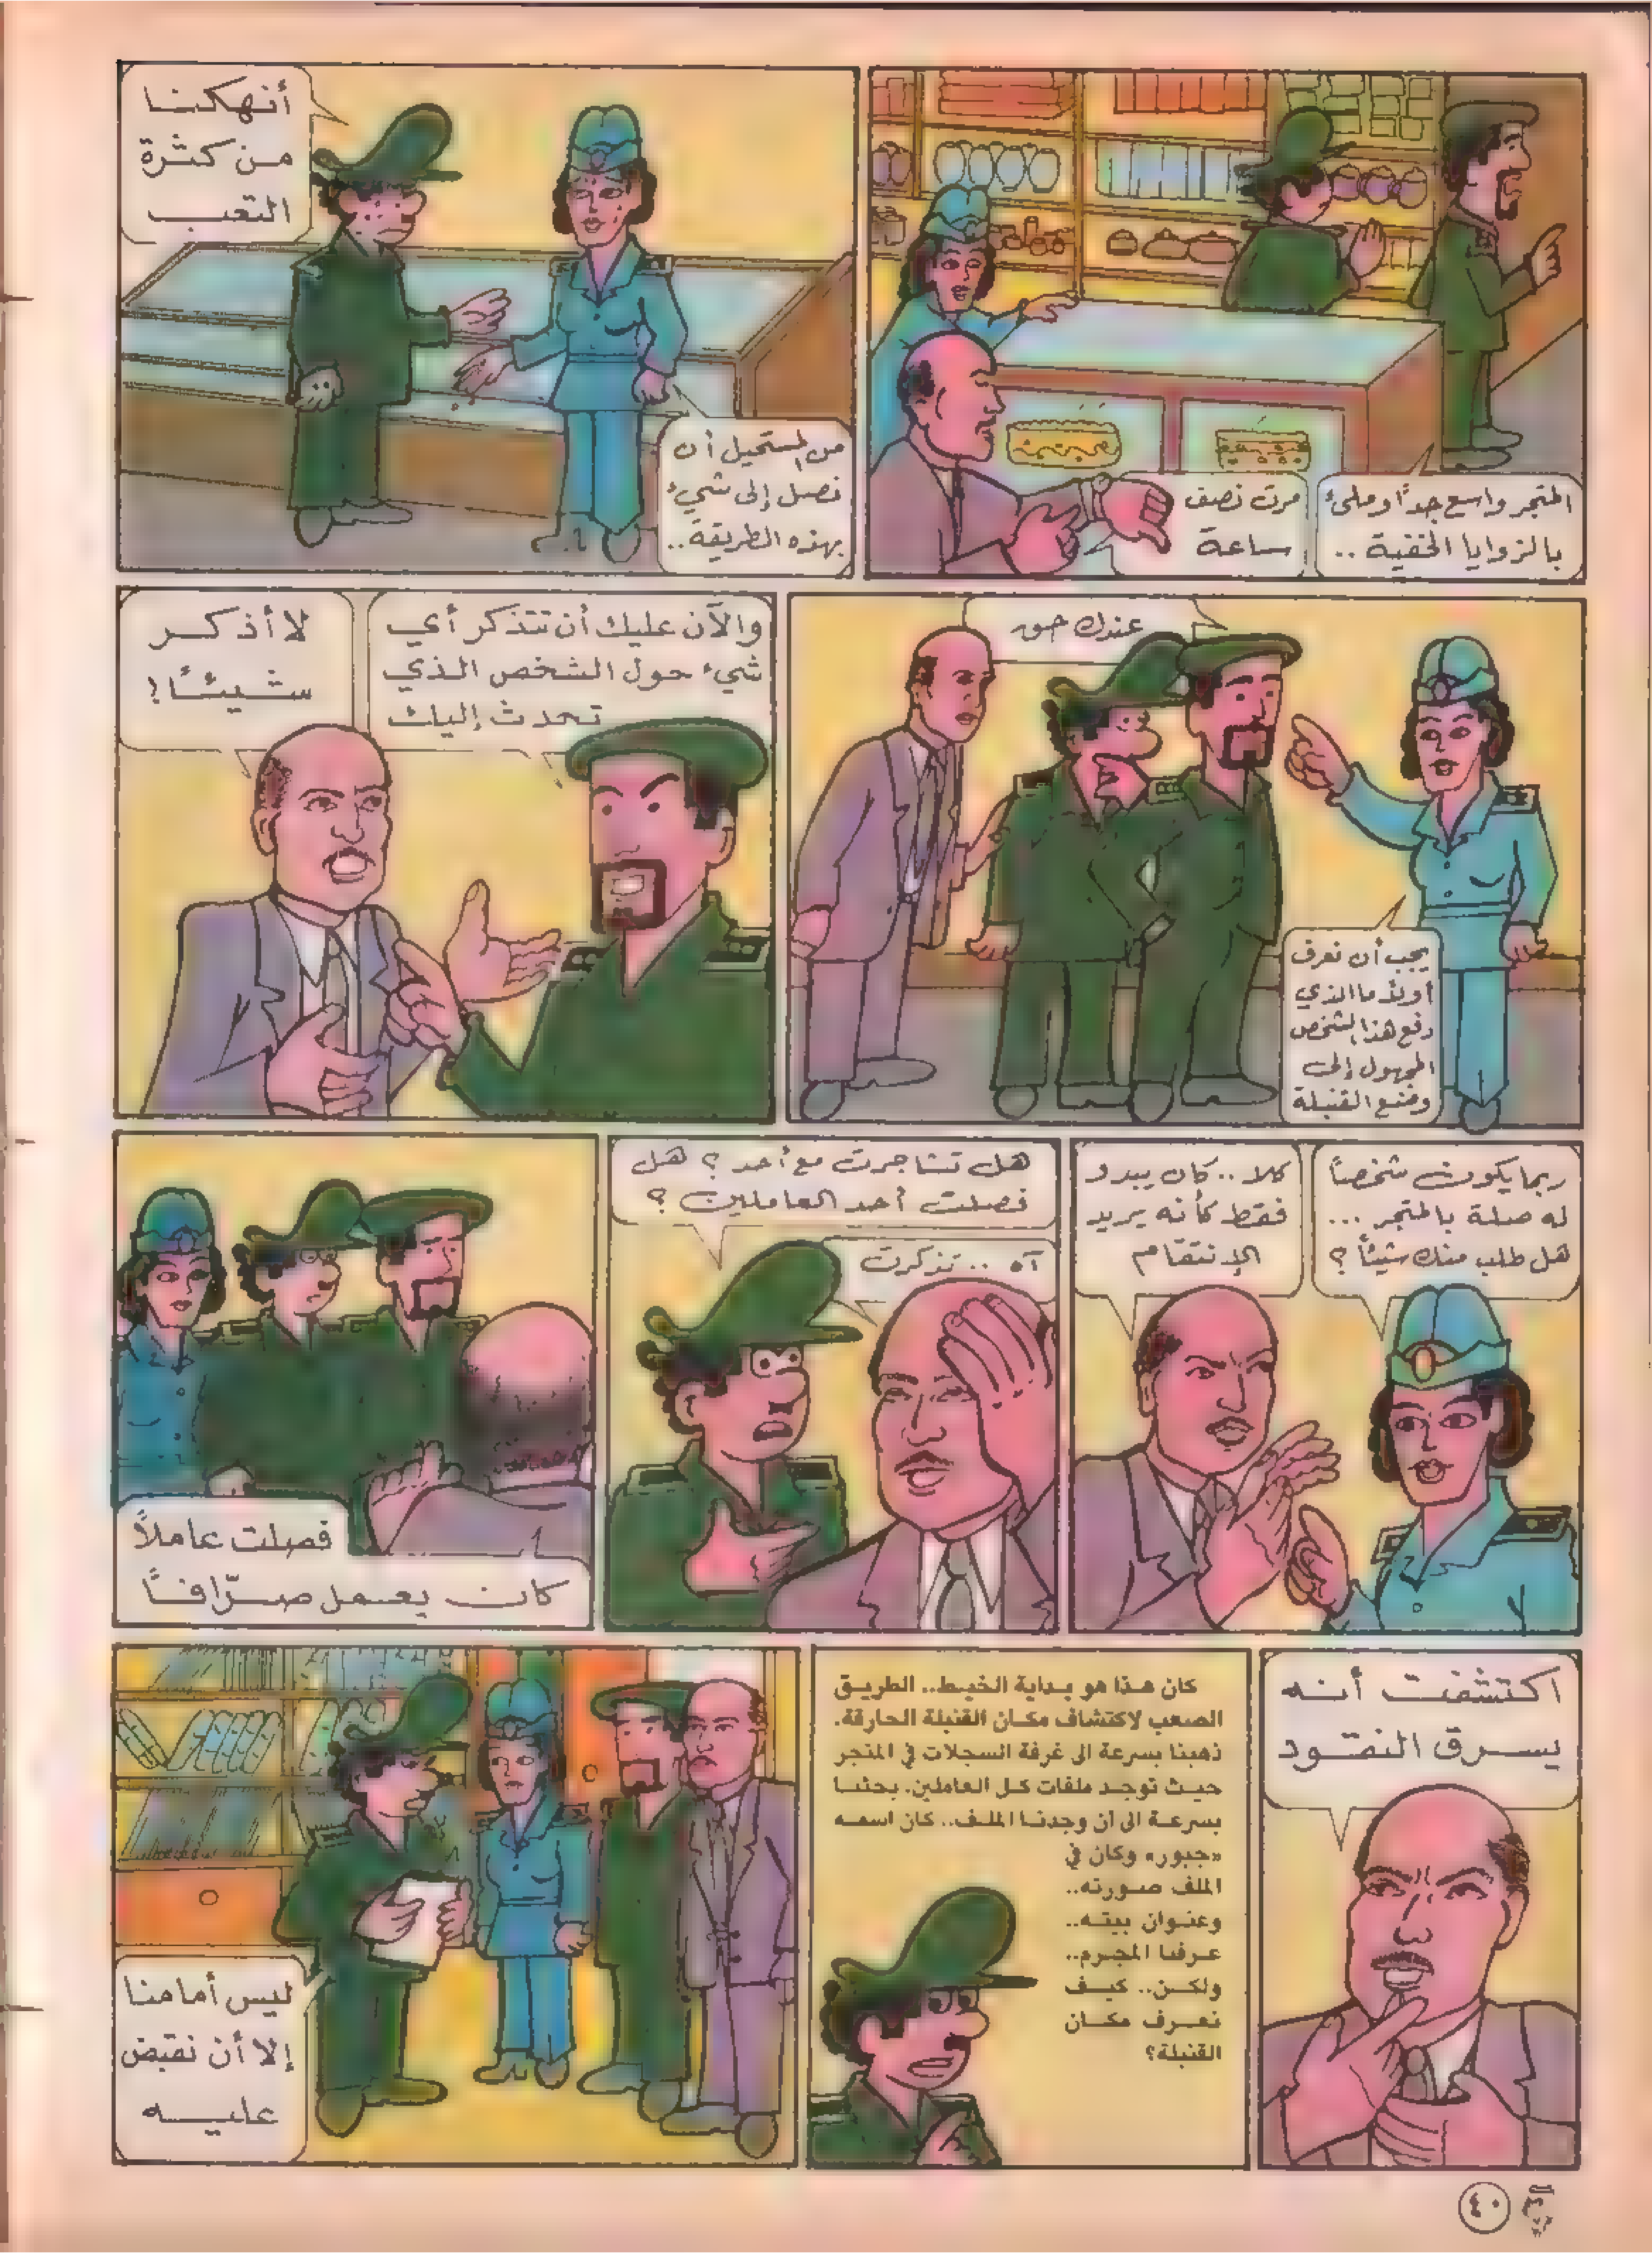 المتجر واسع جدًا وملئ
بالزوايا الخفية ..
مرت نصف
ساعة
أنهكنا
من كثرة
التعب
من المستحيل أن
نصل إلى شيء
بهذه الطريقة..
عندك حق
يجب أن نعرف
أولاً ما الذي
دفع هذا الشخص
المجهول إلى
وضع القنبلة
والآن عليك أن تتذكر أي
شيء حول الشخص الذي
تحدث إليك
لا أذكر
شيئًا!
ربما يكون شخصاً
له صلة بالمتجر ...
هل طلب منك شيئاً؟
كلا .. كان يبدو
فقط كأنه يريد
الإنتقام
هل تشاجرت مع أحد؟ هل
فصلت أحد العاملين؟
آه .. تذكرت
فصلت عاملاً
كان يعمل صرّافاً
اكتشفت أنه
يسرق النقود
كان هذا هو بداية الخيط.. الطريق
الصعب لاكتشاف مكان القنبلة الحارقة.
ذهبنا بسرعة الى غرفة السجلات في المتجر
حيث توجد ملفات كل العاملين. بحثنا
بسرعة الى أن وجدنا الملف.. كان اسمه
«جبور» وكان في
الملف صورته..
وعنوان بيته..
عرفنا المجرم..
ولكن.. كيف
نعرف مكان
القنبلة؟
ليس أمامنا
إلا أن نقبض
عليه
٤٠